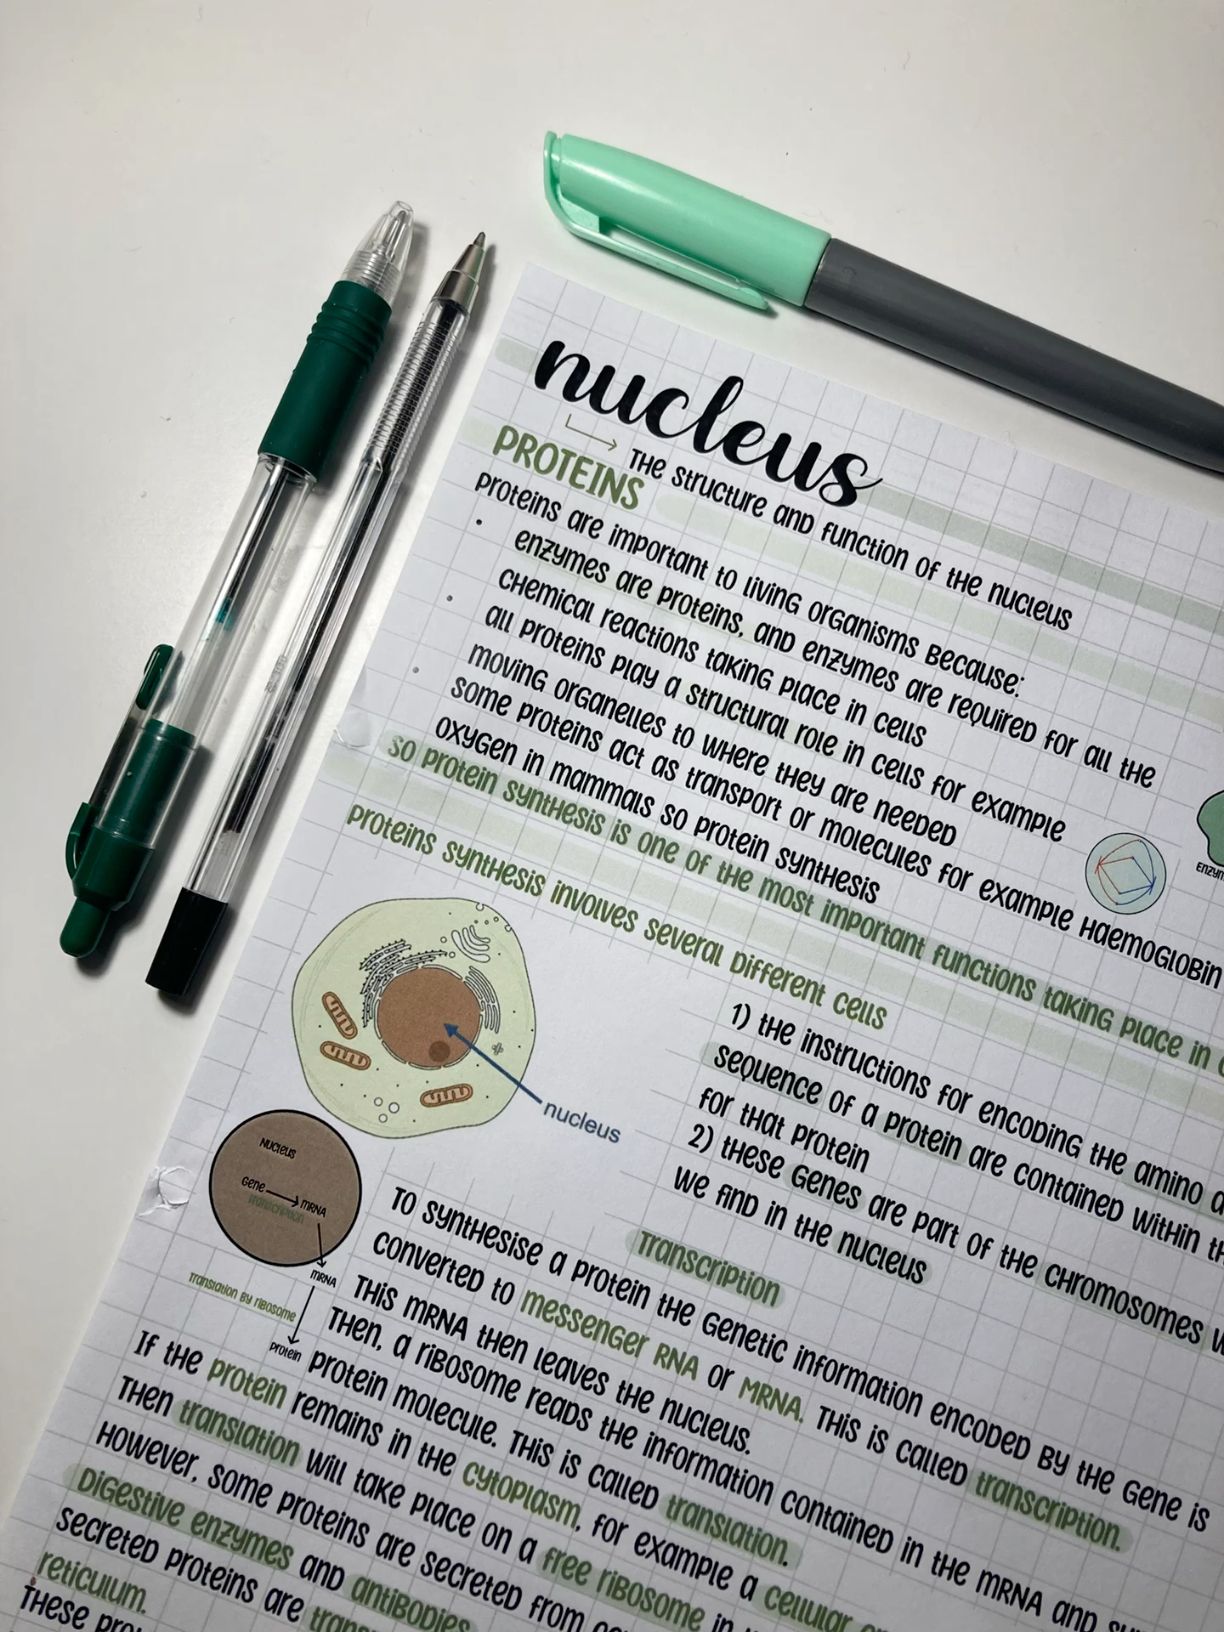 nucleus
THE STRUCTURE AND FUNCTION OF THE NUCLEUS
PROTEINS
PROTEINS ARE IMPORTANT TO LIVING ORGANISMS BECAUSE:
• ENZYMES ARE PROTEINS, AND ENZYMES ARE REQUIRED FOR ALL THE
CHEMICAL REACTIONS TAKING PLACE IN CELLS
• ALL PROTEINS PLAY A STRUCTURAL ROLE IN CELLS FOR EXAMPLE
MOVING ORGANELLES TO WHERE THEY ARE NEEDED
• SOME PROTEINS ACT AS TRANSPORT OR MOLECULES FOR EXAMPLE HAEMOGLOBIN
OXYGEN IN MAMMALS SO PROTEIN SYNTHESIS
SO PROTEIN SYNTHESIS IS ONE OF THE MOST IMPORTANT FUNCTIONS TAKING PLACE IN
PROTEINS SYNTHESIS INVOLVES SEVERAL DIFFERENT CELLS
1) THE INSTRUCTIONS FOR ENCODING THE AMINO
SEQUENCE OF A PROTEIN ARE CONTAINED WITHIN
FOR THAT PROTEIN
2) THESE GENES ARE PART OF THE CHROMOSOMES
WE FIND IN THE NUCLEUS
nucleus
NUCLEUS
GENE
MRNA
TRANSCRIPTION
MRNA
TRANSLATION BY RIBOSOME
PROTEIN
TRANSCRIPTION
TO SYNTHESISE A PROTEIN THE GENETIC INFORMATION ENCODED BY THE GENE IS
CONVERTED TO MESSENGER RNA OR MRNA. THIS IS CALLED TRANSCRIPTION.
THIS MRNA THEN LEAVES THE NUCLEUS.
THEN, A RIBOSOME READS THE INFORMATION CONTAINED IN THE MRNA AND
PROTEIN MOLECULE. THIS IS CALLED TRANSLATION.
IF THE PROTEIN REMAINS IN THE CYTOPLASM, FOR EXAMPLE A CELLULAR
THEN TRANSLATION WILL TAKE PLACE ON A FREE RIBOSOME IN
HOWEVER, SOME PROTEINS ARE SECRETED FROM
DIGESTIVE ENZYMES AND ANTIBODIES
SECRETED PROTEINS ARE
RETICULUM.
THESE